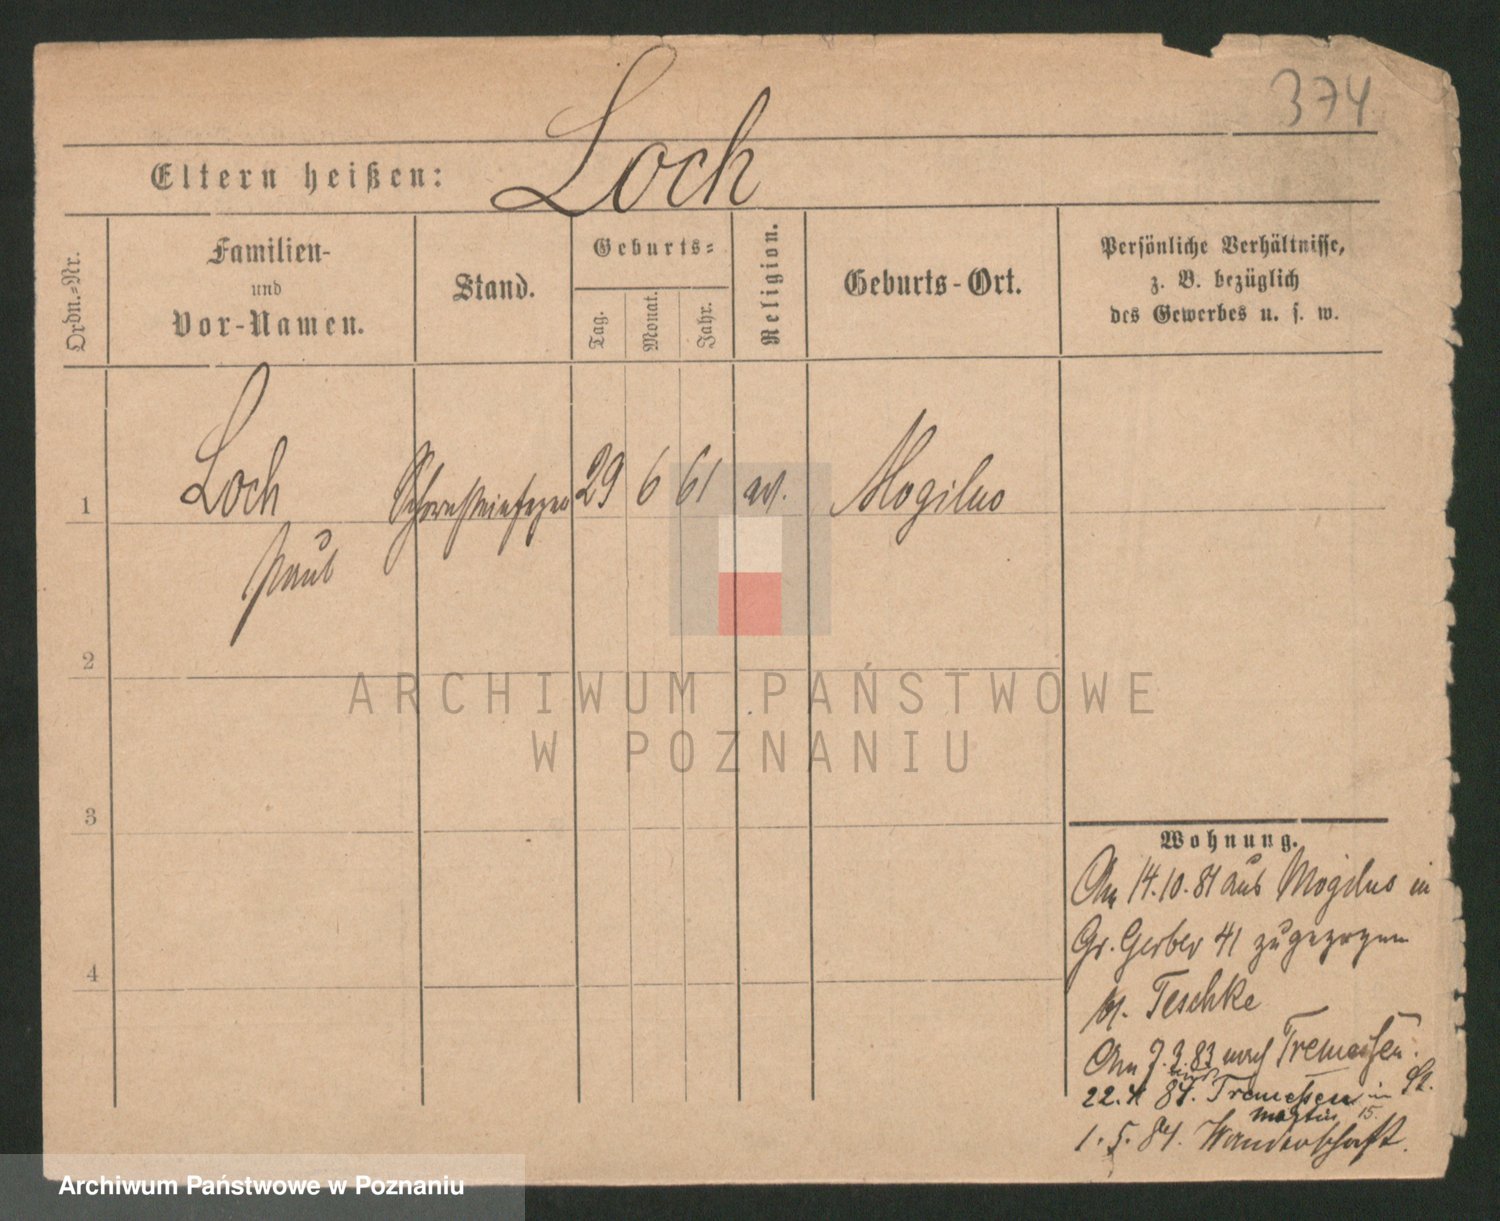 374
Eltern heißen: Loch
Ordn.-Nr.
Familien-
und
Vor-Namen.
Stand.
Geburts-
Tag.
Monat.
Jahr.
Religion.
Geburts-Ort.
Persönliche Verhältnisse,
z. B. bezüglich
des Gewerbes u. s. w.
1
Loch
Paul
Schornsteinfeger
29
6
61
ev.
Mogilno
2
3
4
Wohnung.
Am 14.10.81 aus Mogilno in
Gr. Gerber 41 zugezogen
b. Teschke
Am 7.3.83 nach Tremessen.
22.4.84. aus Tremessen in St.
Martin 15.
1.5.84. Wanderschaft.
ARCHIWUM PAŃSTWOWE
W POZNANIU
Archiwum Państwowe w Poznaniu